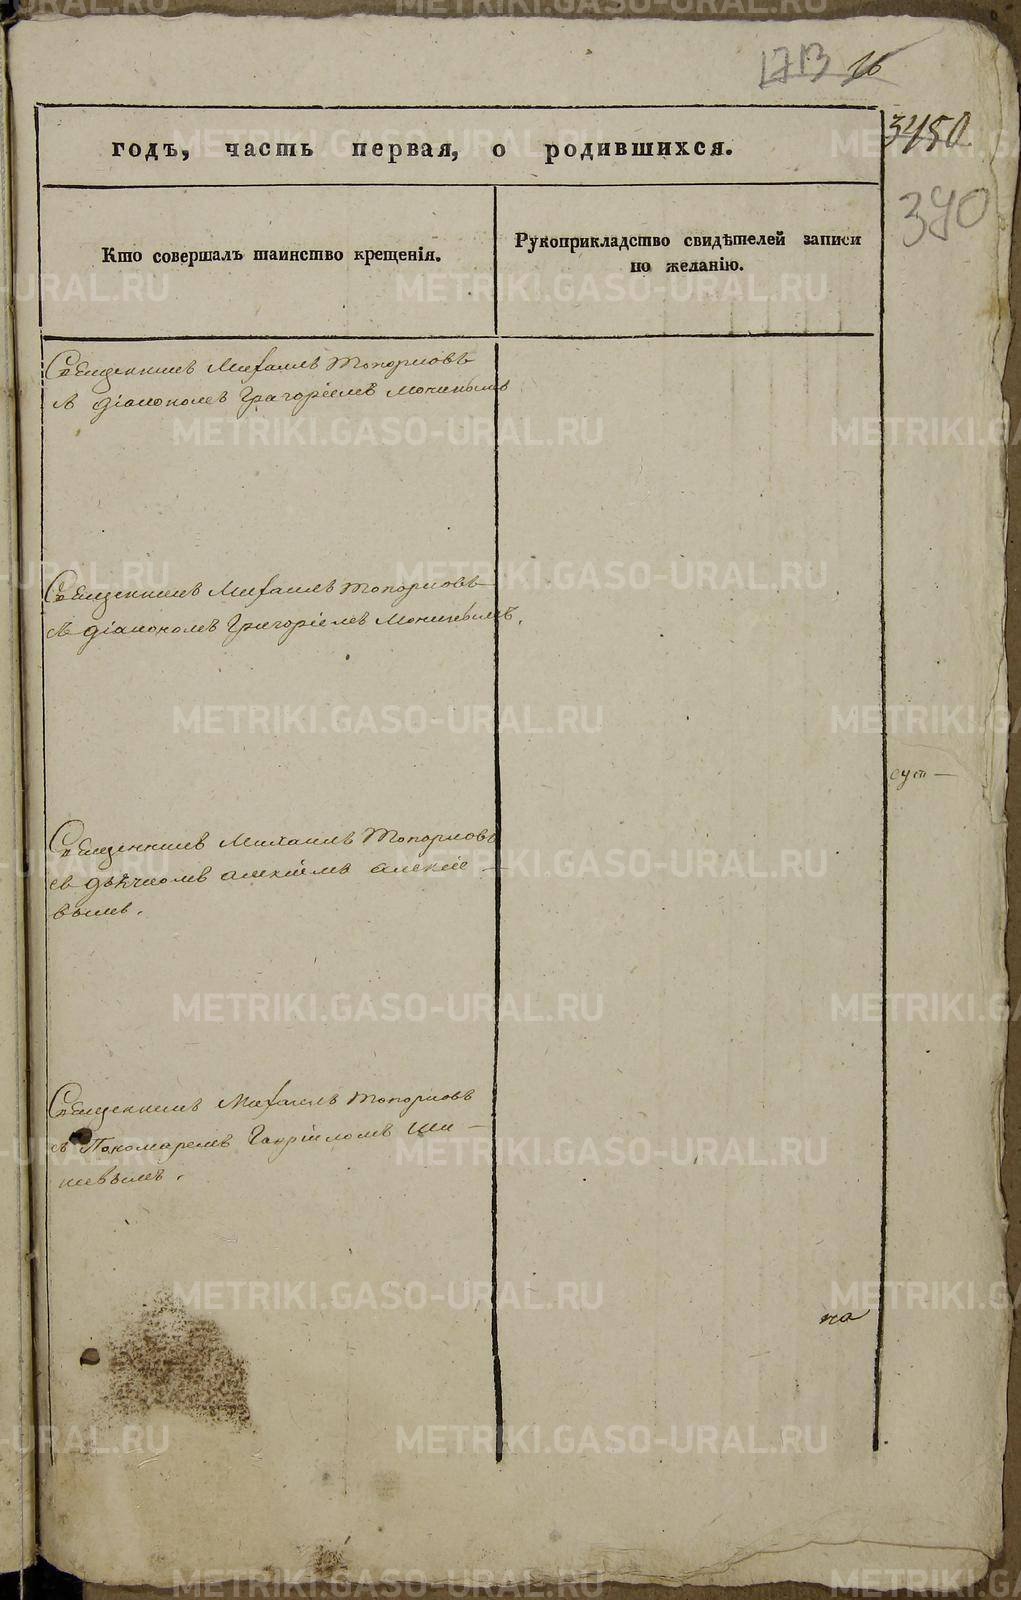 1713 16
3450
340
годъ, часть первая, о родившихся.
Кто совершалъ таинство крещенія.
Рукоприкладство свидѣтелей записи
по желанію.
Священникъ Михаилъ Топорковъ
съ діакономъ Григоріемъ
Священникъ Михаилъ Топорковъ
съ діакономъ Григоріемъ
сут—
Священникъ Михаилъ Топорковъ
съ дьячкомъ Алексіемъ Алексіе—
вымъ.
Священникъ Михаилъ Топорковъ
съ Пономаремъ Гавріиломъ Ши—
на
METRIKI.GASO-URAL.RU